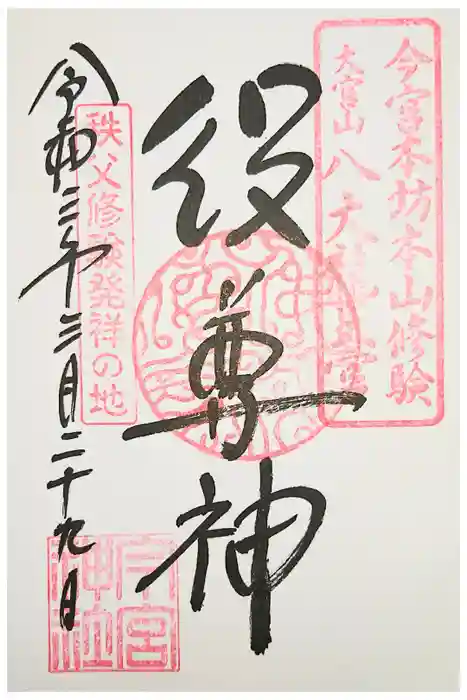 今宮本坊本山修験
大宮山八大龍王宮
役尊神
秩父修験発祥の地
令和三年三月二十九日
今宮
神社